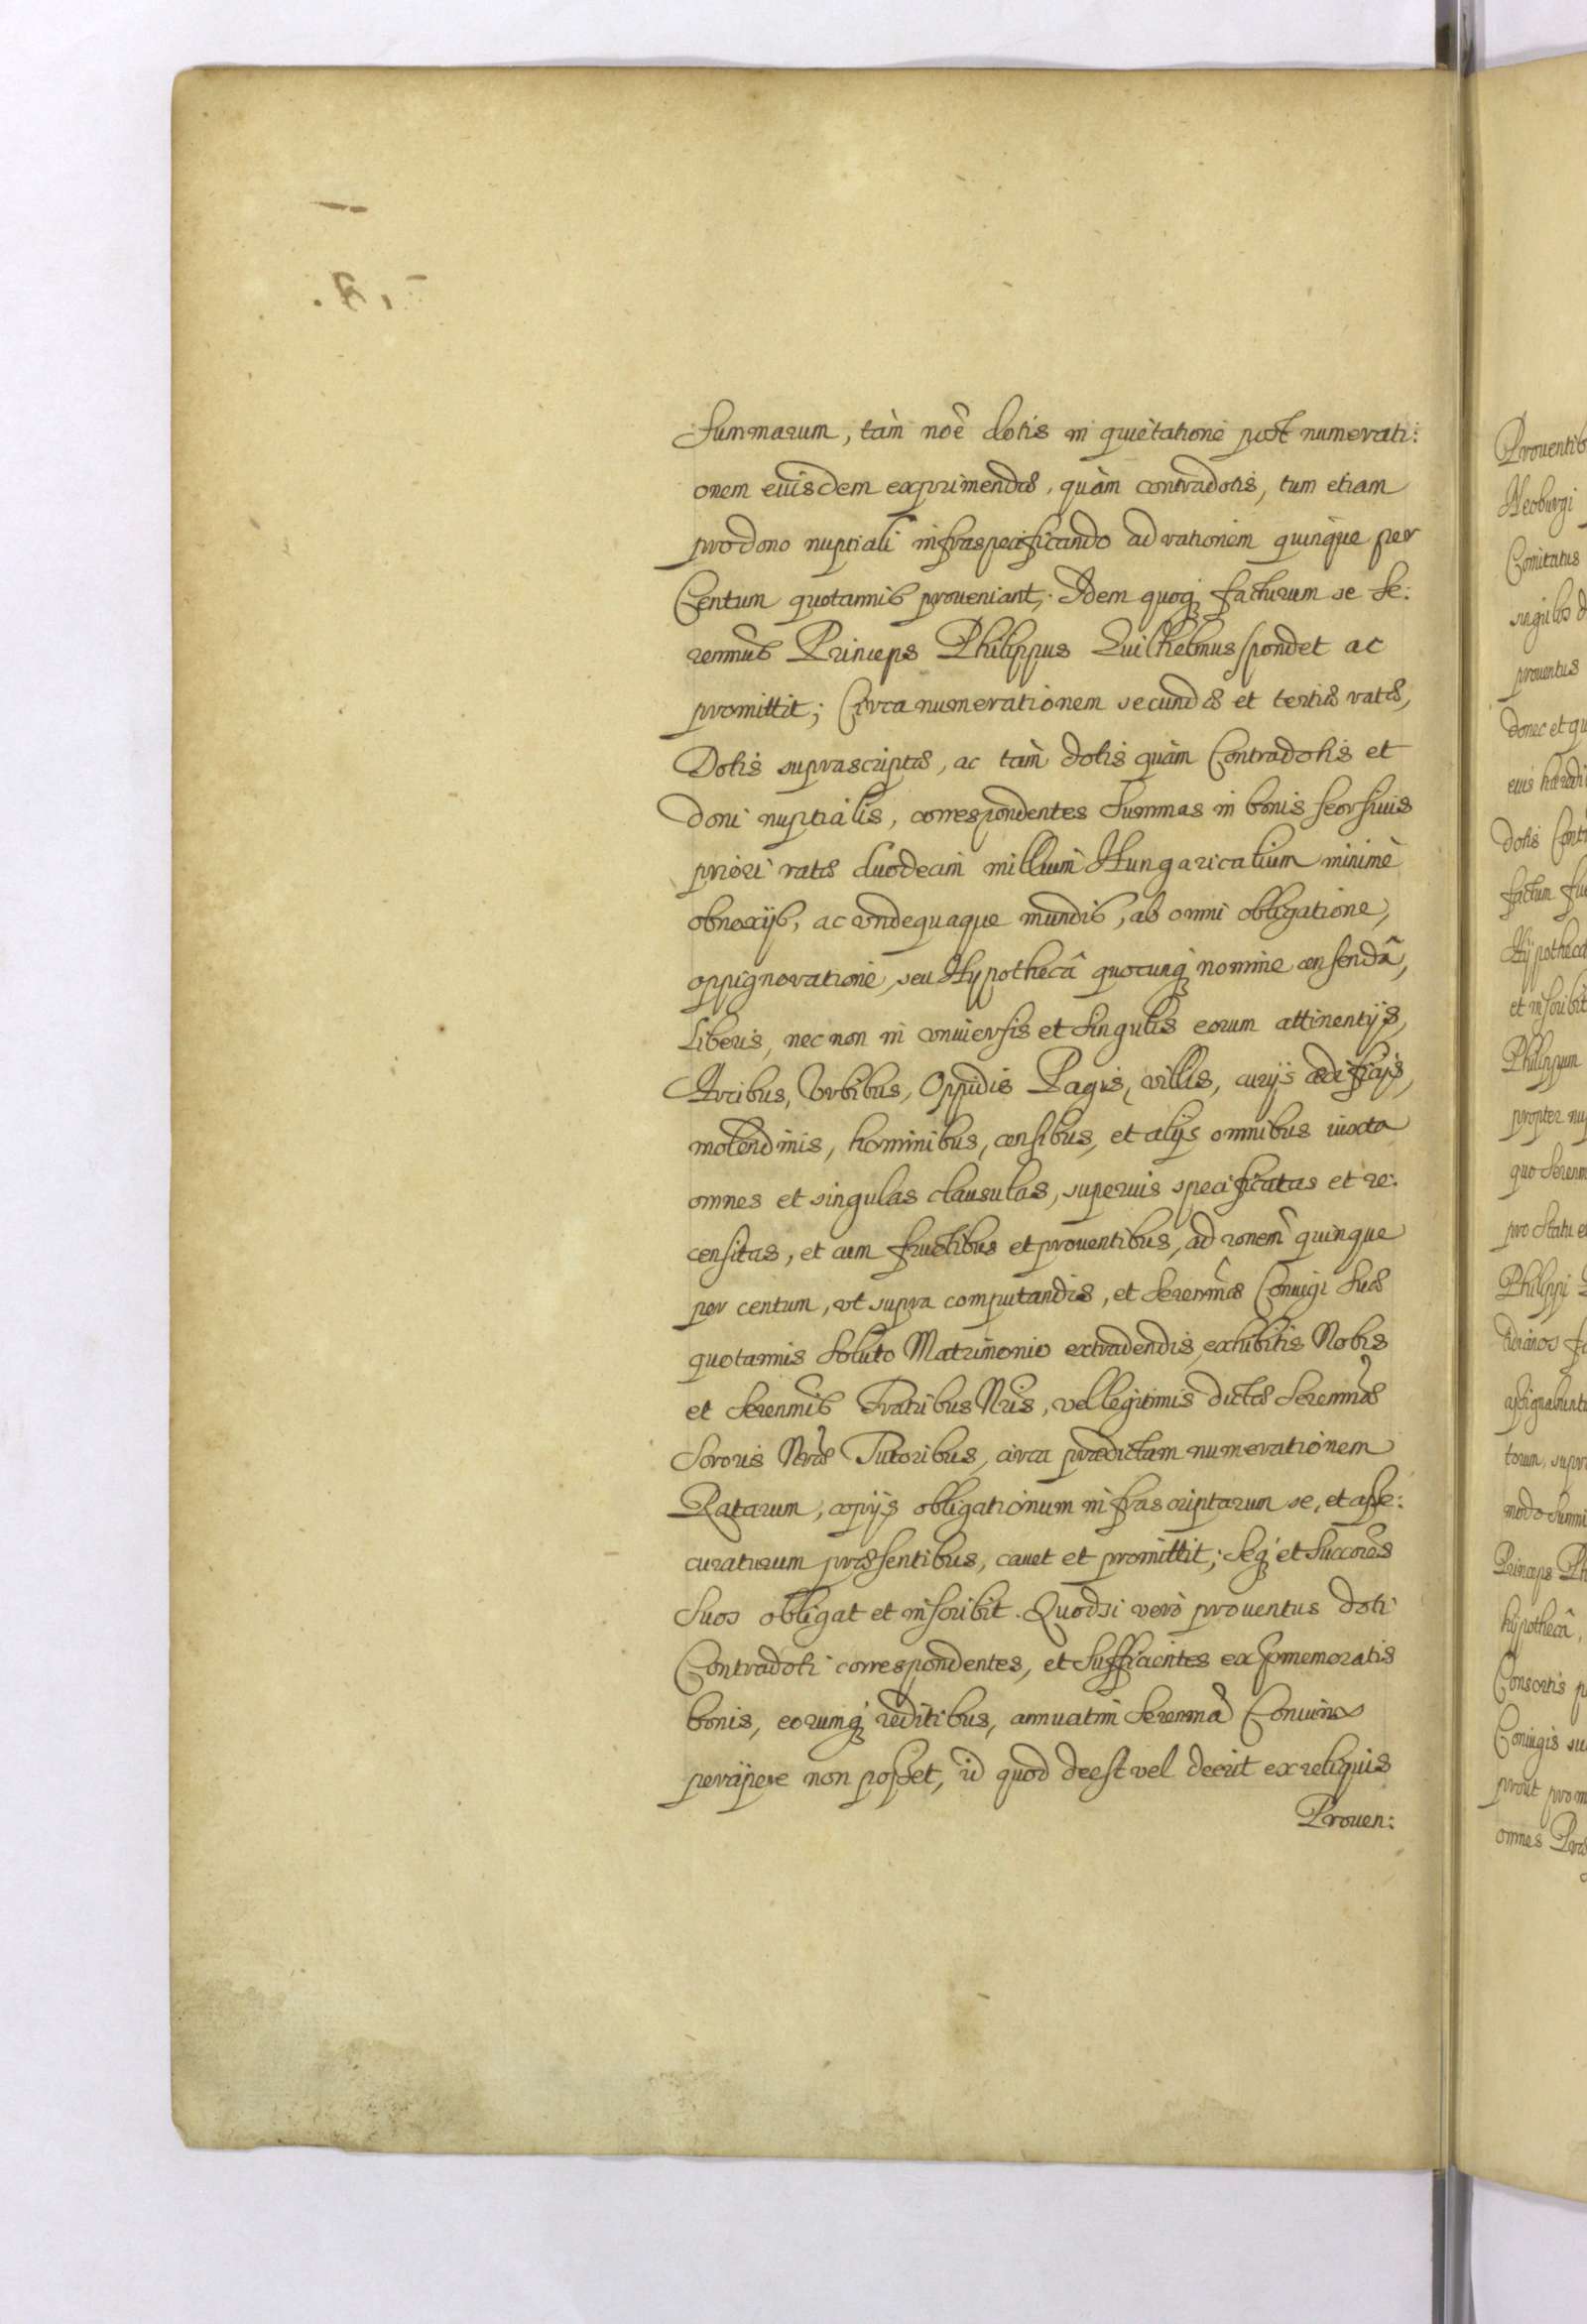 Summarum, tàm noẽ dotis in quietatione post numerati:
onem eiusdem exprimendæ, quàm contradotis, tum etiam
pro dono nuptiali infraspecificando ad rationem quinque per
Centum quotannis proueniant; Idem quoq; facturum se Se:
renmus Princeps Philippus Guilhelmus spondet ac
promittit; Circa numerationem secundæ et tertiæ ratæ,
Dotis suprascriptæ, ac tàm dotis quàm Contradotis et
doni nuptialis, correspondentes Summas in bonis seorsiuis
priori ratæ duodecim millium Hungaricalium minimè
obnoxijs, ac vndequaque mundis, ab omni obligatione,
oppignoratione, seu Hypothecâ quocunq; nomine censendâ,
Liberis, nec non in vniuersis et Singulis eorum attinentijs,
Arcibus, Vrbibus, Oppidis Pagis, villis, curijs ædificijs,
molendinis, hominibus, censibus, et alijs omnibus iuxta
omnes et singulas clausulas, superuis specificatas et re:
censitas, et cum fructibus et prouentibus, ad ronem quinque
per centum, vt supra computandis, et Serenmæ Coniugi Suæ
quotannis Soluto Matrimonio extradendis, exhibitis Nobis
et Serenmis Fratribus Nris, vel legitimis dictæ Serenmæ
Sororis Nræ Tutoribus, circa prædictam numerationem
Ratarum, copijs obligationum infrascriptarum se, et asse:
curaturum præsentibus, cauet et promittit; Seq; et Succores
Suos obligat et inscribit. Quodsi verò prouentus doti
Contradoti correspondentes, et Sufficientes ex commemoratis
bonis, eorumq; reditibus, annuatim Serenma Coniunx
percipere non posset, id quod deest vel deerit ex reliquis
Prouen:
Prouentib
Neoburgi
Comitatus
singulos d
prouentus
donec et qu
eius hæredi
dotis Cont
factum fu
Hypotheca
et inscribit
Philippum
propter nup
quo Serenm
pro Statu e
Philippi
assignabunt
torum, supr
modo Summi
Princeps Ph
hypothecâ,
Consortis p
Coniugis su
prout prom
omnes Præ